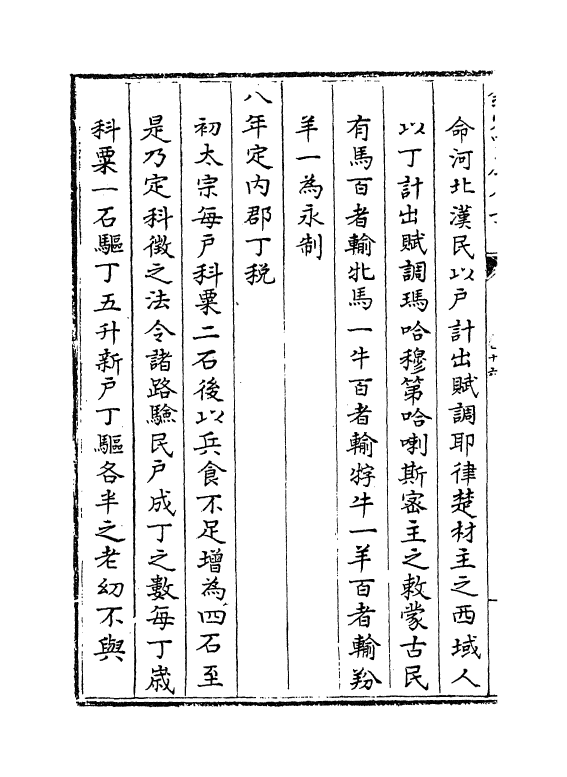 命河北漢民以戸計出賦調耶律楚材主之西域人
以丁計出賦調瑪哈穆第哈喇斯宻主之敕蒙古民
有馬百者輸牝馬一牛百者輸牸牛一羊百者輸羒
羊一為永制
八年定内郡丁税
初太宗每戸科粟二石後以兵食不足增為四石至
是乃定科徵之法令諸路驗民戸成丁之數每丁嵗
科粟一石驅丁五升新戸丁驅各半之老幼不與